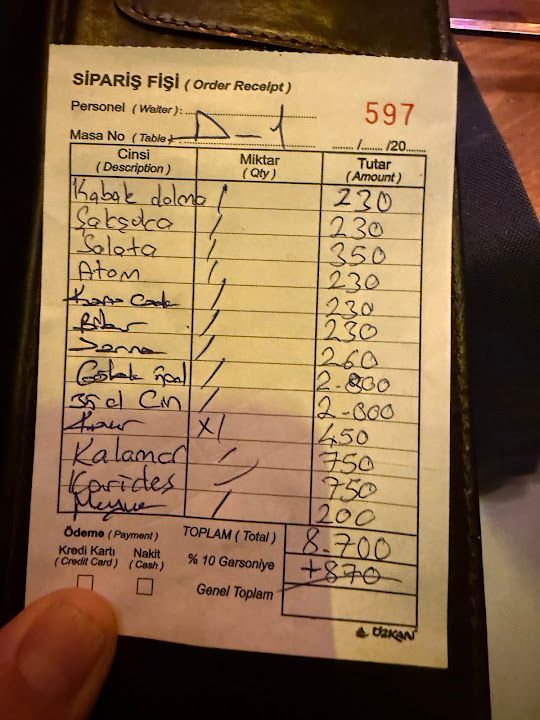 SİPARİŞ FİŞİ ( Order Receipt )
Personel ( Waiter ) :
597
Masa No ( Table ) D-1 ....../....../20......
Cinsi ( Description ) Miktar ( Qty ) Tutar ( Amount )
Kabak dolma / 230
Şakşuka / 230
Salata / 350
Atom / 230
/ 230
/ 230
/ 260
Göbek / 2.800
35 cl Cin / 2.800
X1 450
Kalamar / 750
Karides / 750
Meyve / 200
Ödeme ( Payment ) TOPLAM ( Total ) 8.700
Kredi Kartı ( Credit Card ) Nakit ( Cash ) % 10 Garsoniye +870
Genel Toplam
ÖZKAN